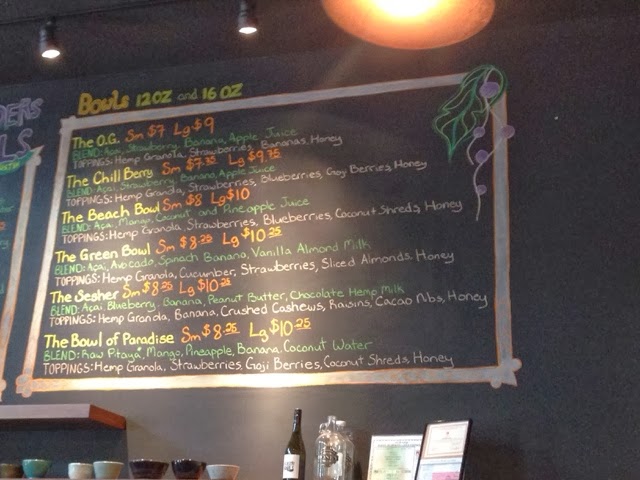 DERS
LS
BOWLS 12OZ and 16 OZ
The O.G. Sm $7 Lg $9
BLEND: Açai, Strawberry, Banana, Apple Juice
TOPPINGS: Hemp Granola, Strawberries, Bananas, Honey
The Chill Berry Sm $7.75 Lg $9.75
BLEND: Açai, Strawberry, Banana, Apple Juice
TOPPINGS: Hemp Granola, Strawberries, Blueberries, Goji Berries, Honey
The Beach Bowl Sm $8 Lg $10
BLEND: Açai, Mango, Coconut and Pineapple Juice
TOPPINGS: Hemp Granola, Strawberries, Blueberries, Coconut Shreds, Honey
The Green Bowl Sm $8.25 Lg $10.25
BLEND: Açai, Avocado, Spinach Banana, Vanilla Almond Milk
TOPPINGS: Hemp Granola, Cucumber, Strawberries, Sliced Almonds, Honey
The Sesher Sm $8.25 Lg $10.25
BLEND: Açai Blueberry, Banana, Peanut Butter, Chocolate Hemp Milk
TOPPINGS: Hemp Granola, Banana, Crushed Cashews, Raisins, Cacao Nibs, Honey
The Bowl of Paradise Sm $8.25 Lg $10.25
BLEND: Raw Pitaya, Mango, Pineapple, Banana, Coconut Water
TOPPINGS: Hemp Granola, Strawberries, Goji Berries, Coconut Shreds, Honey